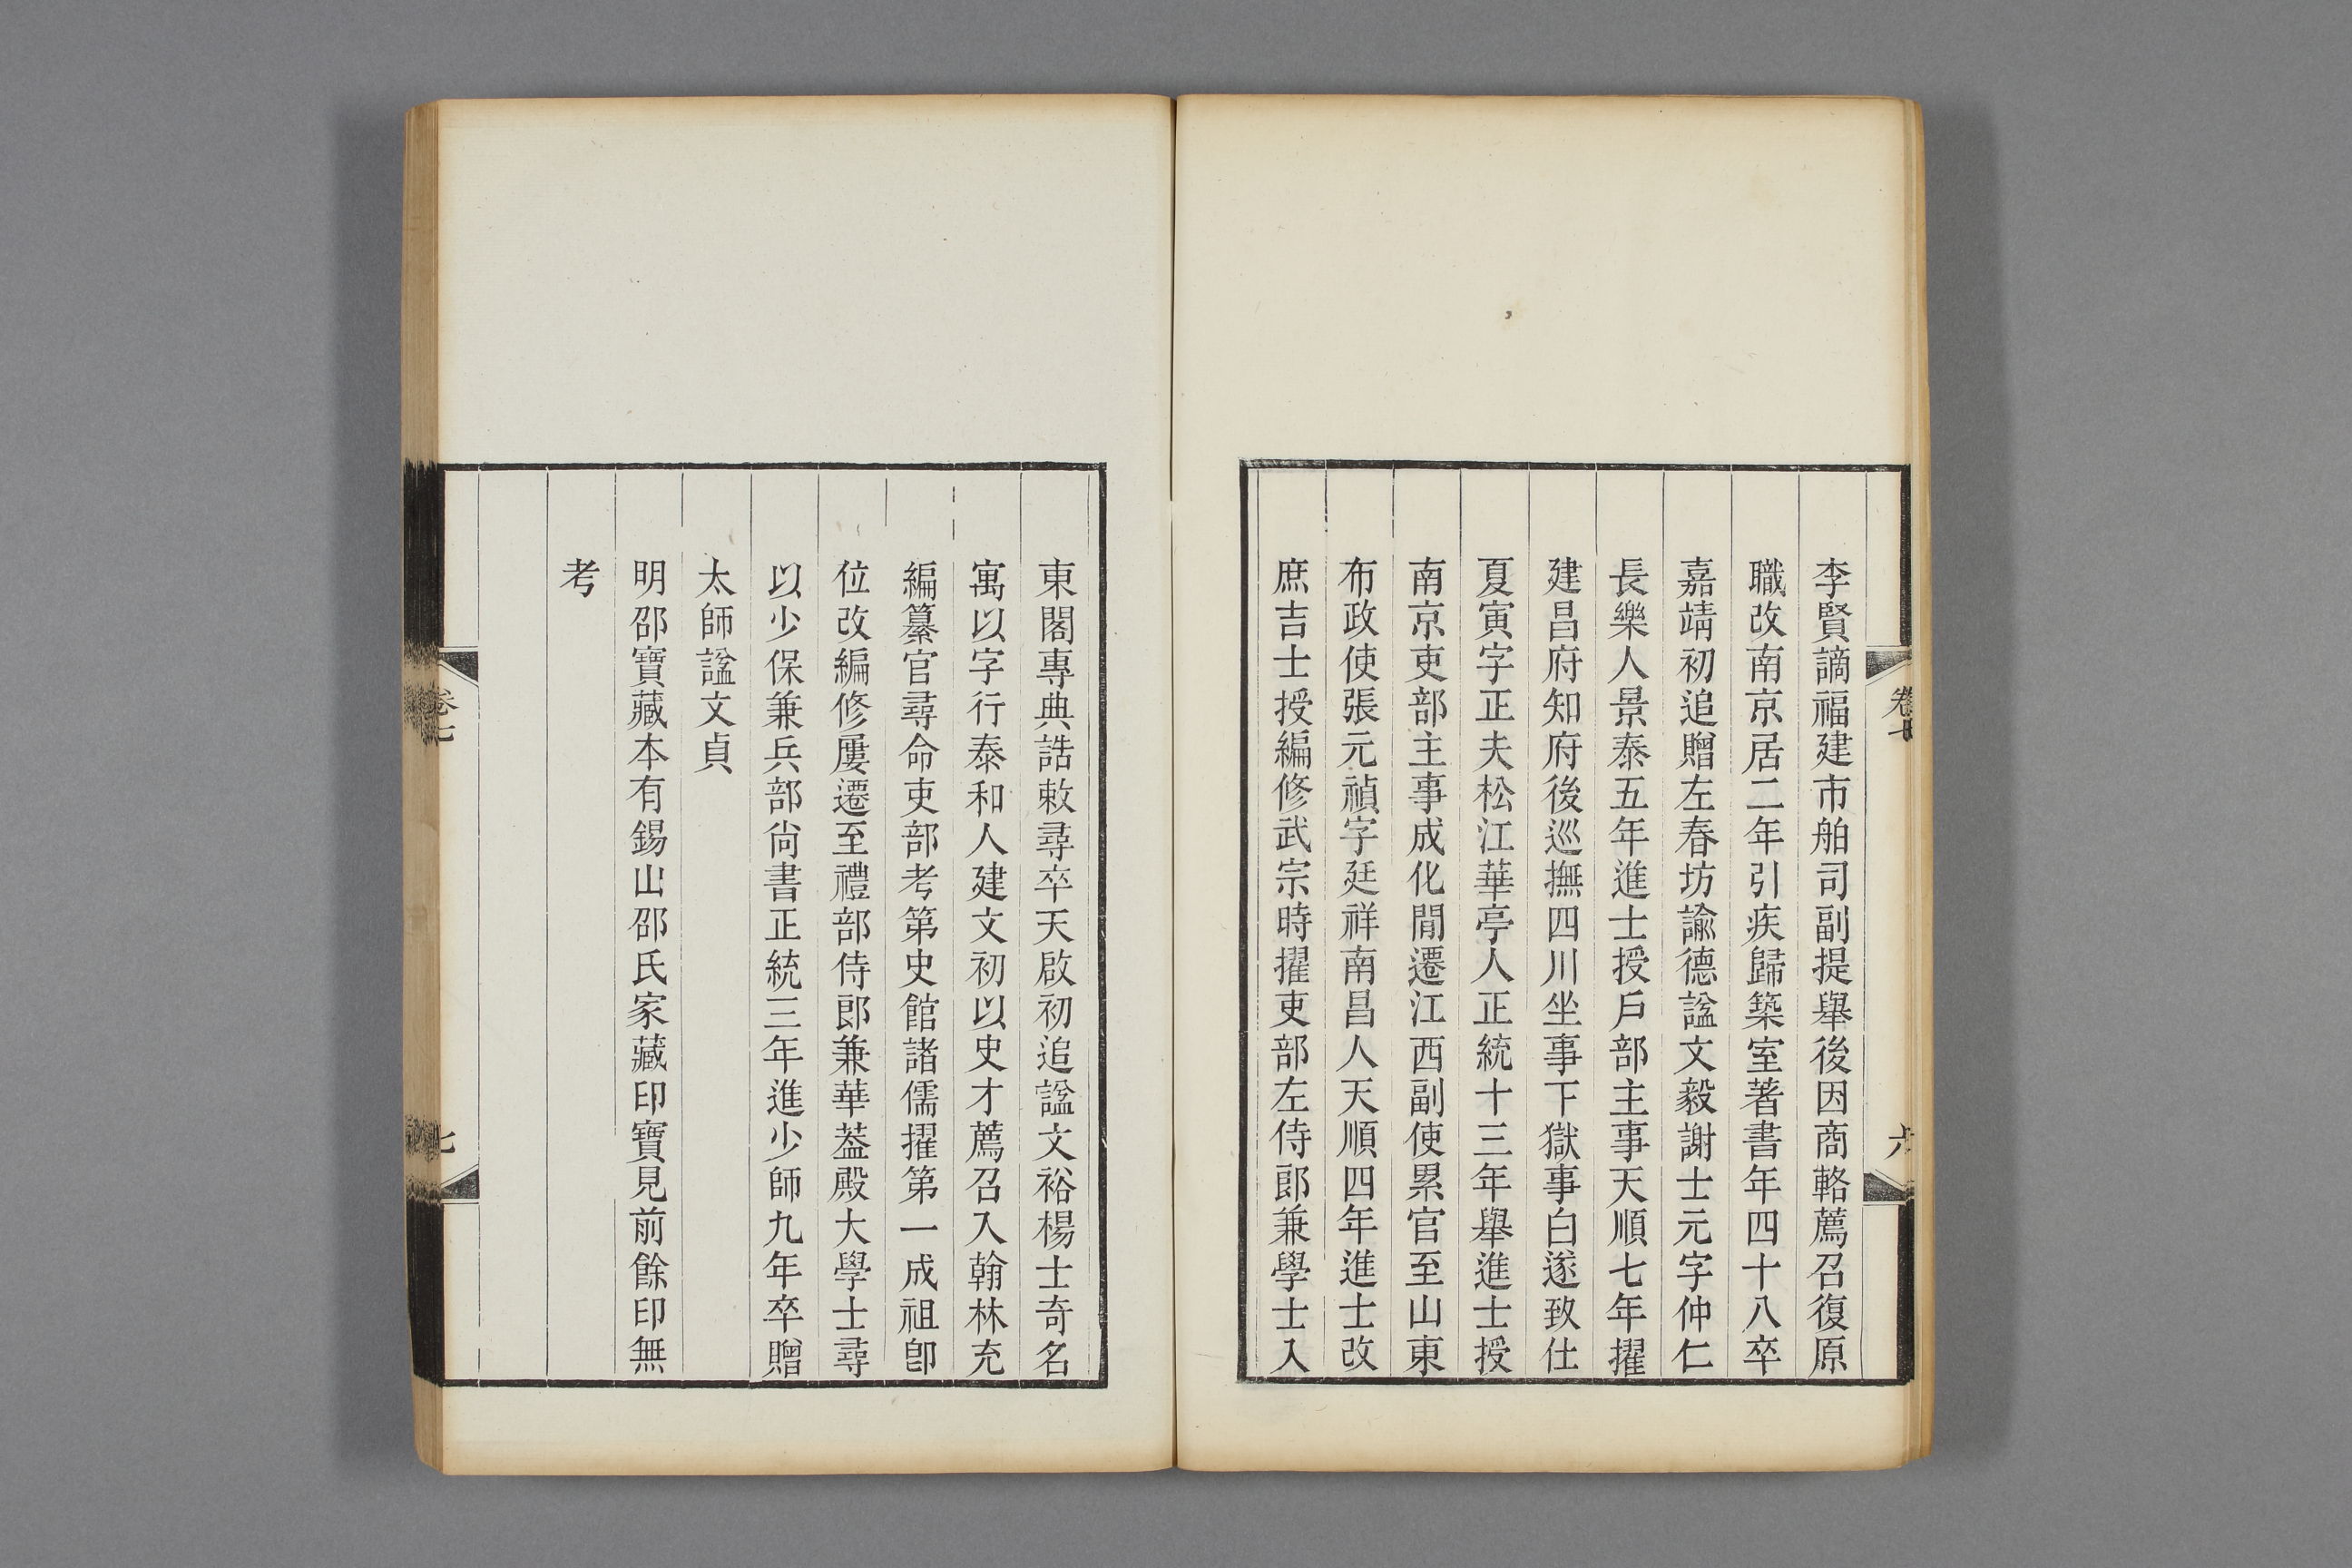 李賢謫福建市舶司副提舉後因商輅薦召復原
職改南京居二年引疾歸築室著書年四十八卒
嘉靖初追贈左春坊諭德諡文毅謝士元字仲仁
長樂人景泰五年進士授戶部主事天順七年擢
建昌府知府後巡撫四川坐事下獄事白遂致仕
夏寅字正夫松江華亭人正統十三年舉進士授
南京吏部主事成化間遷江西副使累官至山東
布政使張元禎字廷祥南昌人天順四年進士改
庶吉士授編修武宗時擢吏部左侍郎兼學士入
東閣專典誥敕尋卒天啟初追諡文裕楊士奇名
寓以字行泰和人建文初以史才薦召入翰林充
編纂官尋命吏部考第史館諸儒擢第一成祖卽
位改編修屢遷至禮部侍郎兼華蓋殿大學士尋
以少保兼兵部尙書正統三年進少師九年卒贈
太師諡文貞
明邵寶藏本有錫山邵氏家藏印寶見前餘印無
考
卷七
七